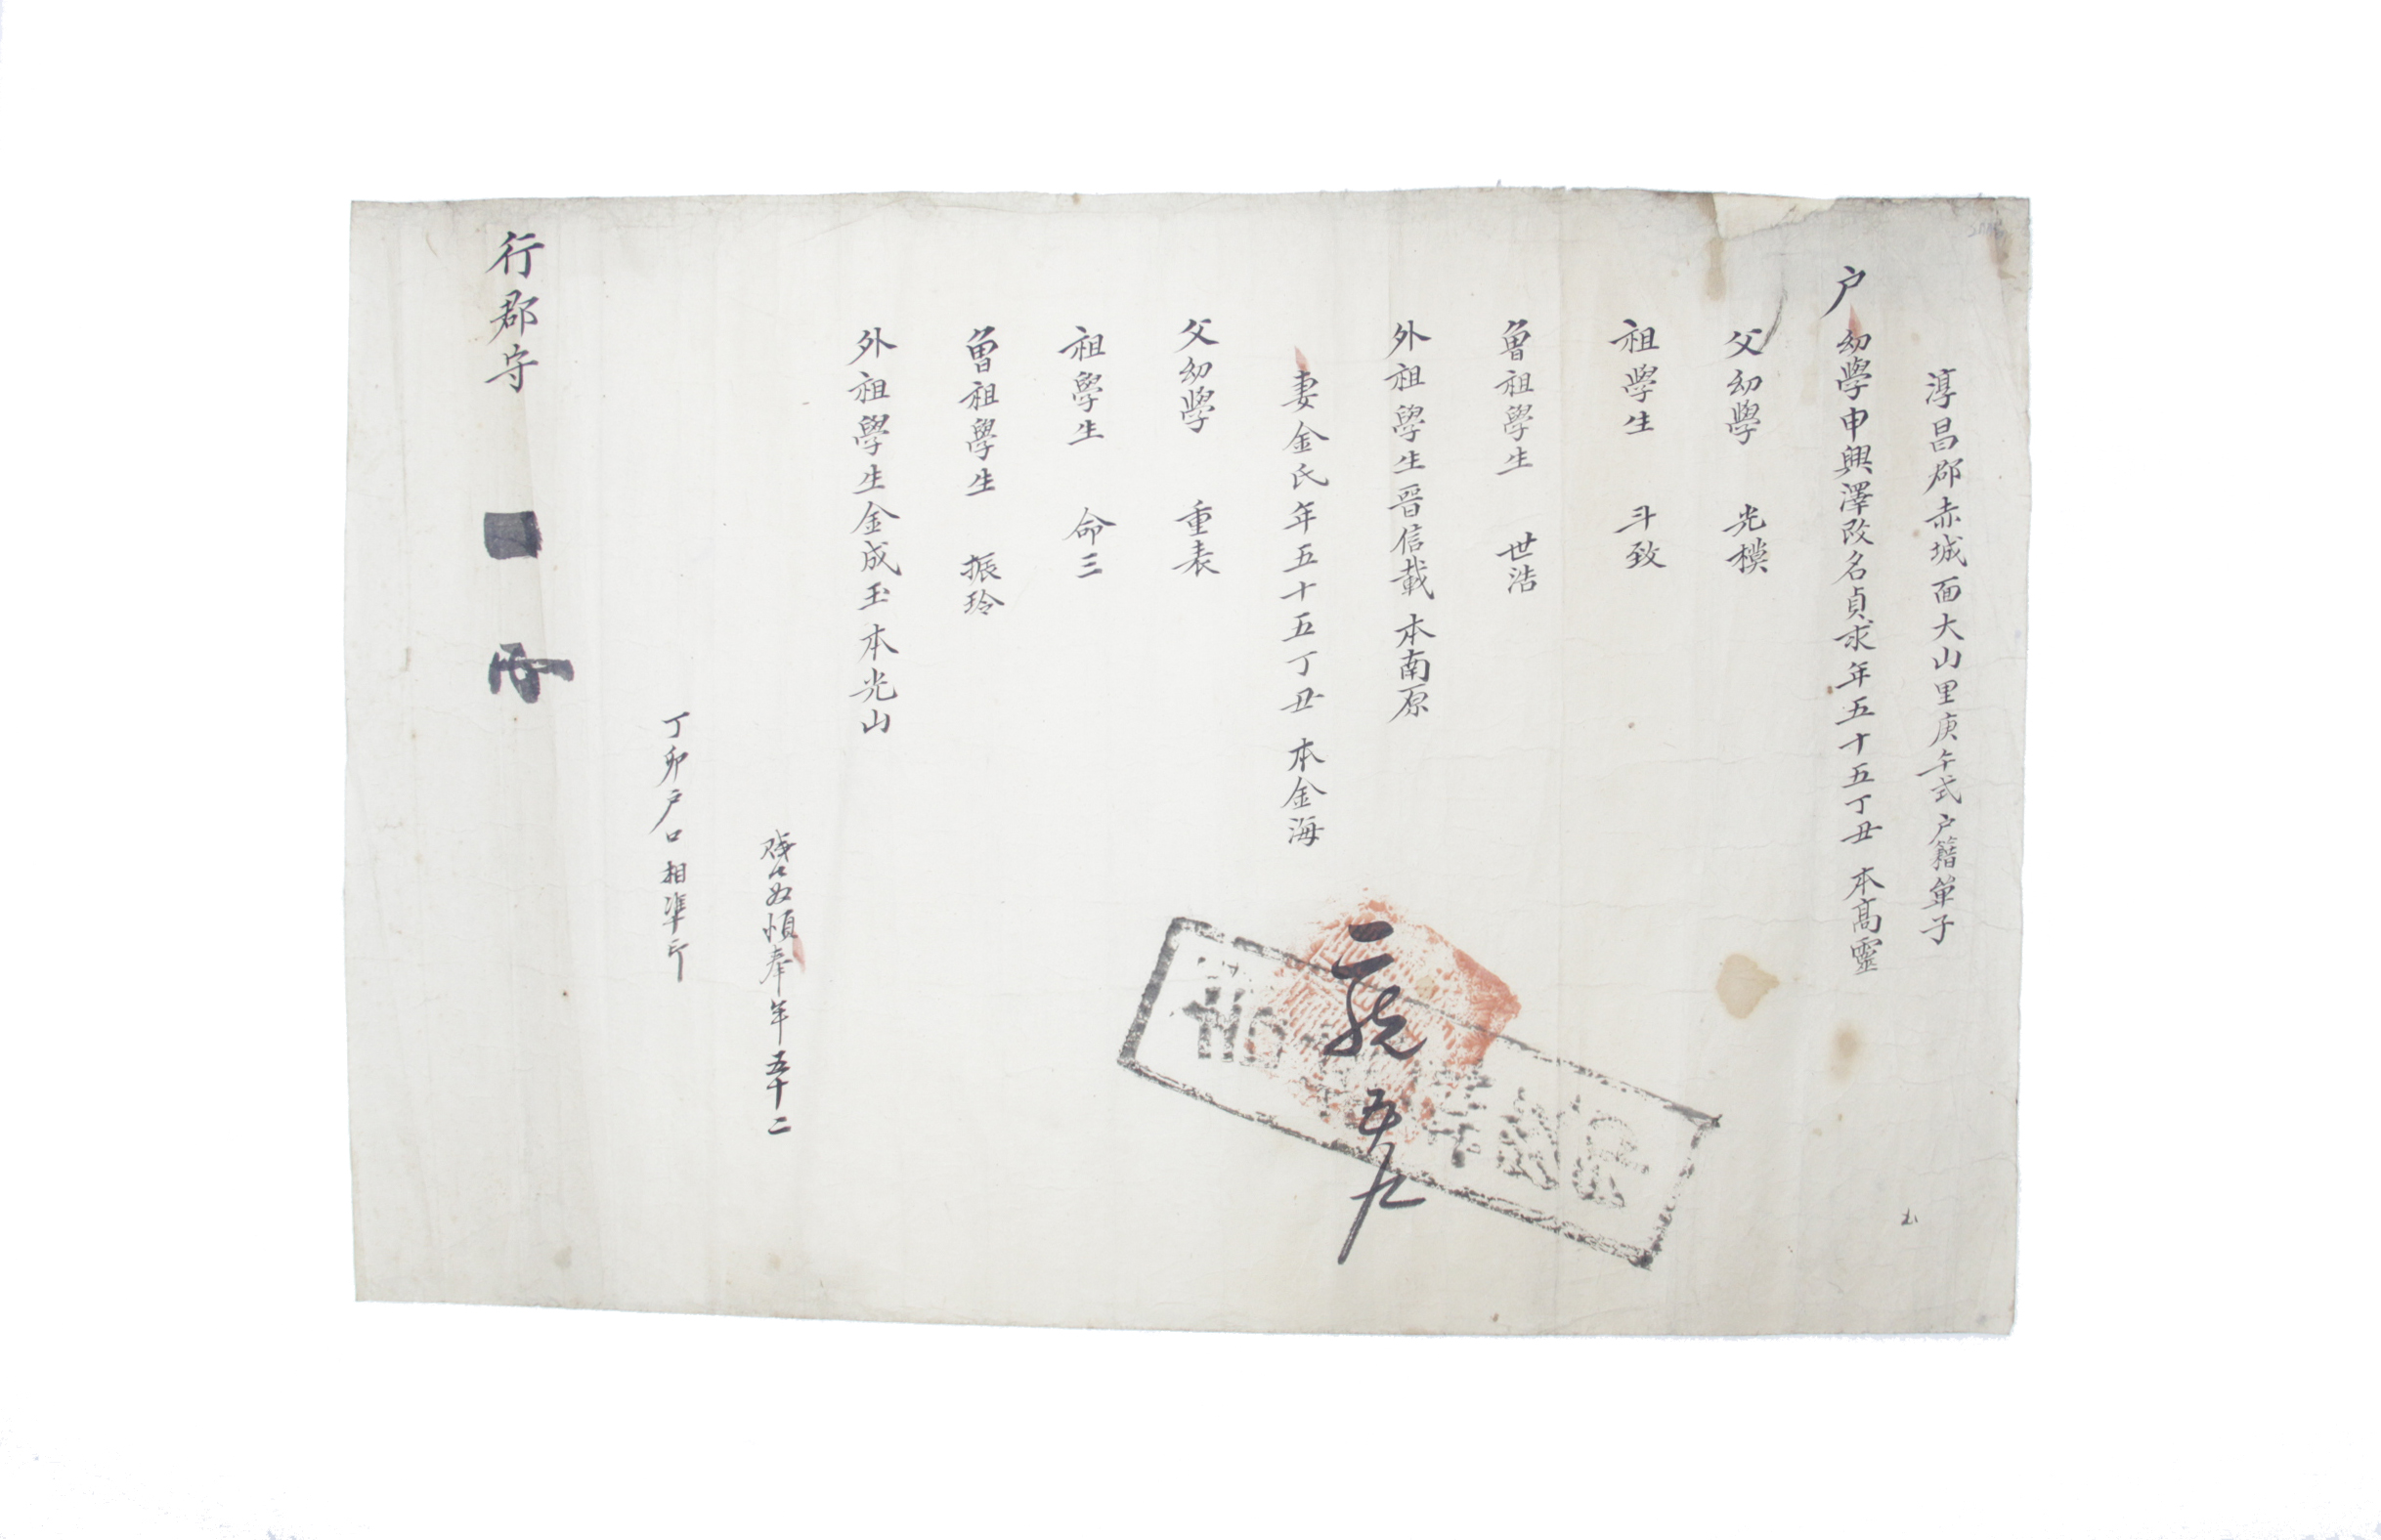 淳昌郡赤城面大山里庚午式户籍單子
户 幼學申興澤改名貞求年五十五丁丑 本高靈
父幼學 光模
祖學生 斗致
曾祖學生 世浩
外祖學生晋信載 本南原
妻金氏年五十五丁丑 本金海
父幼學 重表
祖學生 命三
曾祖學生 振玲
外祖學生金成玉 本光山
奴 奉年五十二
丁卯户口相準印
行郡守
二統 五户